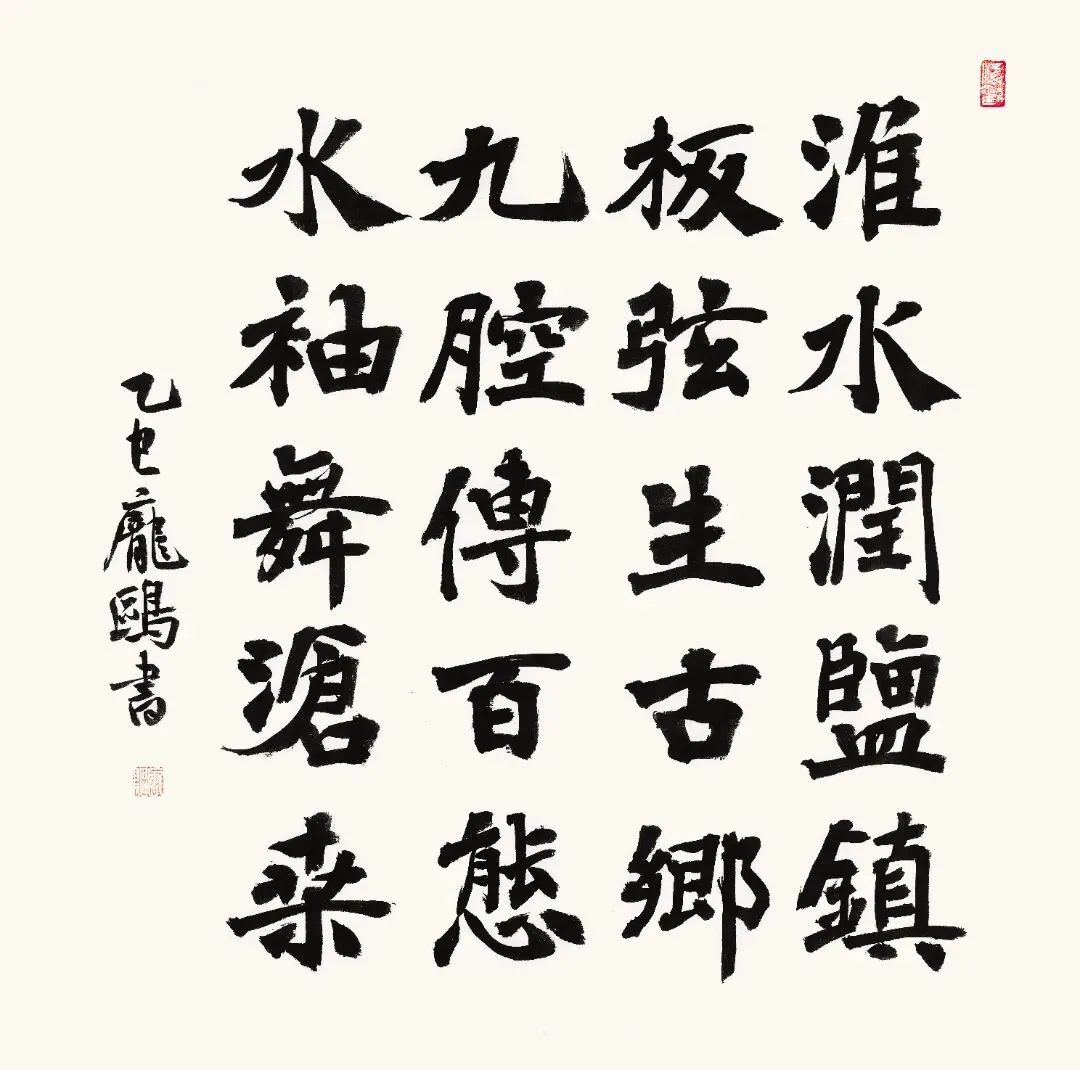 淮水潤鹽鎮
板弦生古鄉
九腔傳百態
水袖舞滄桑
乙巳龐鷗書